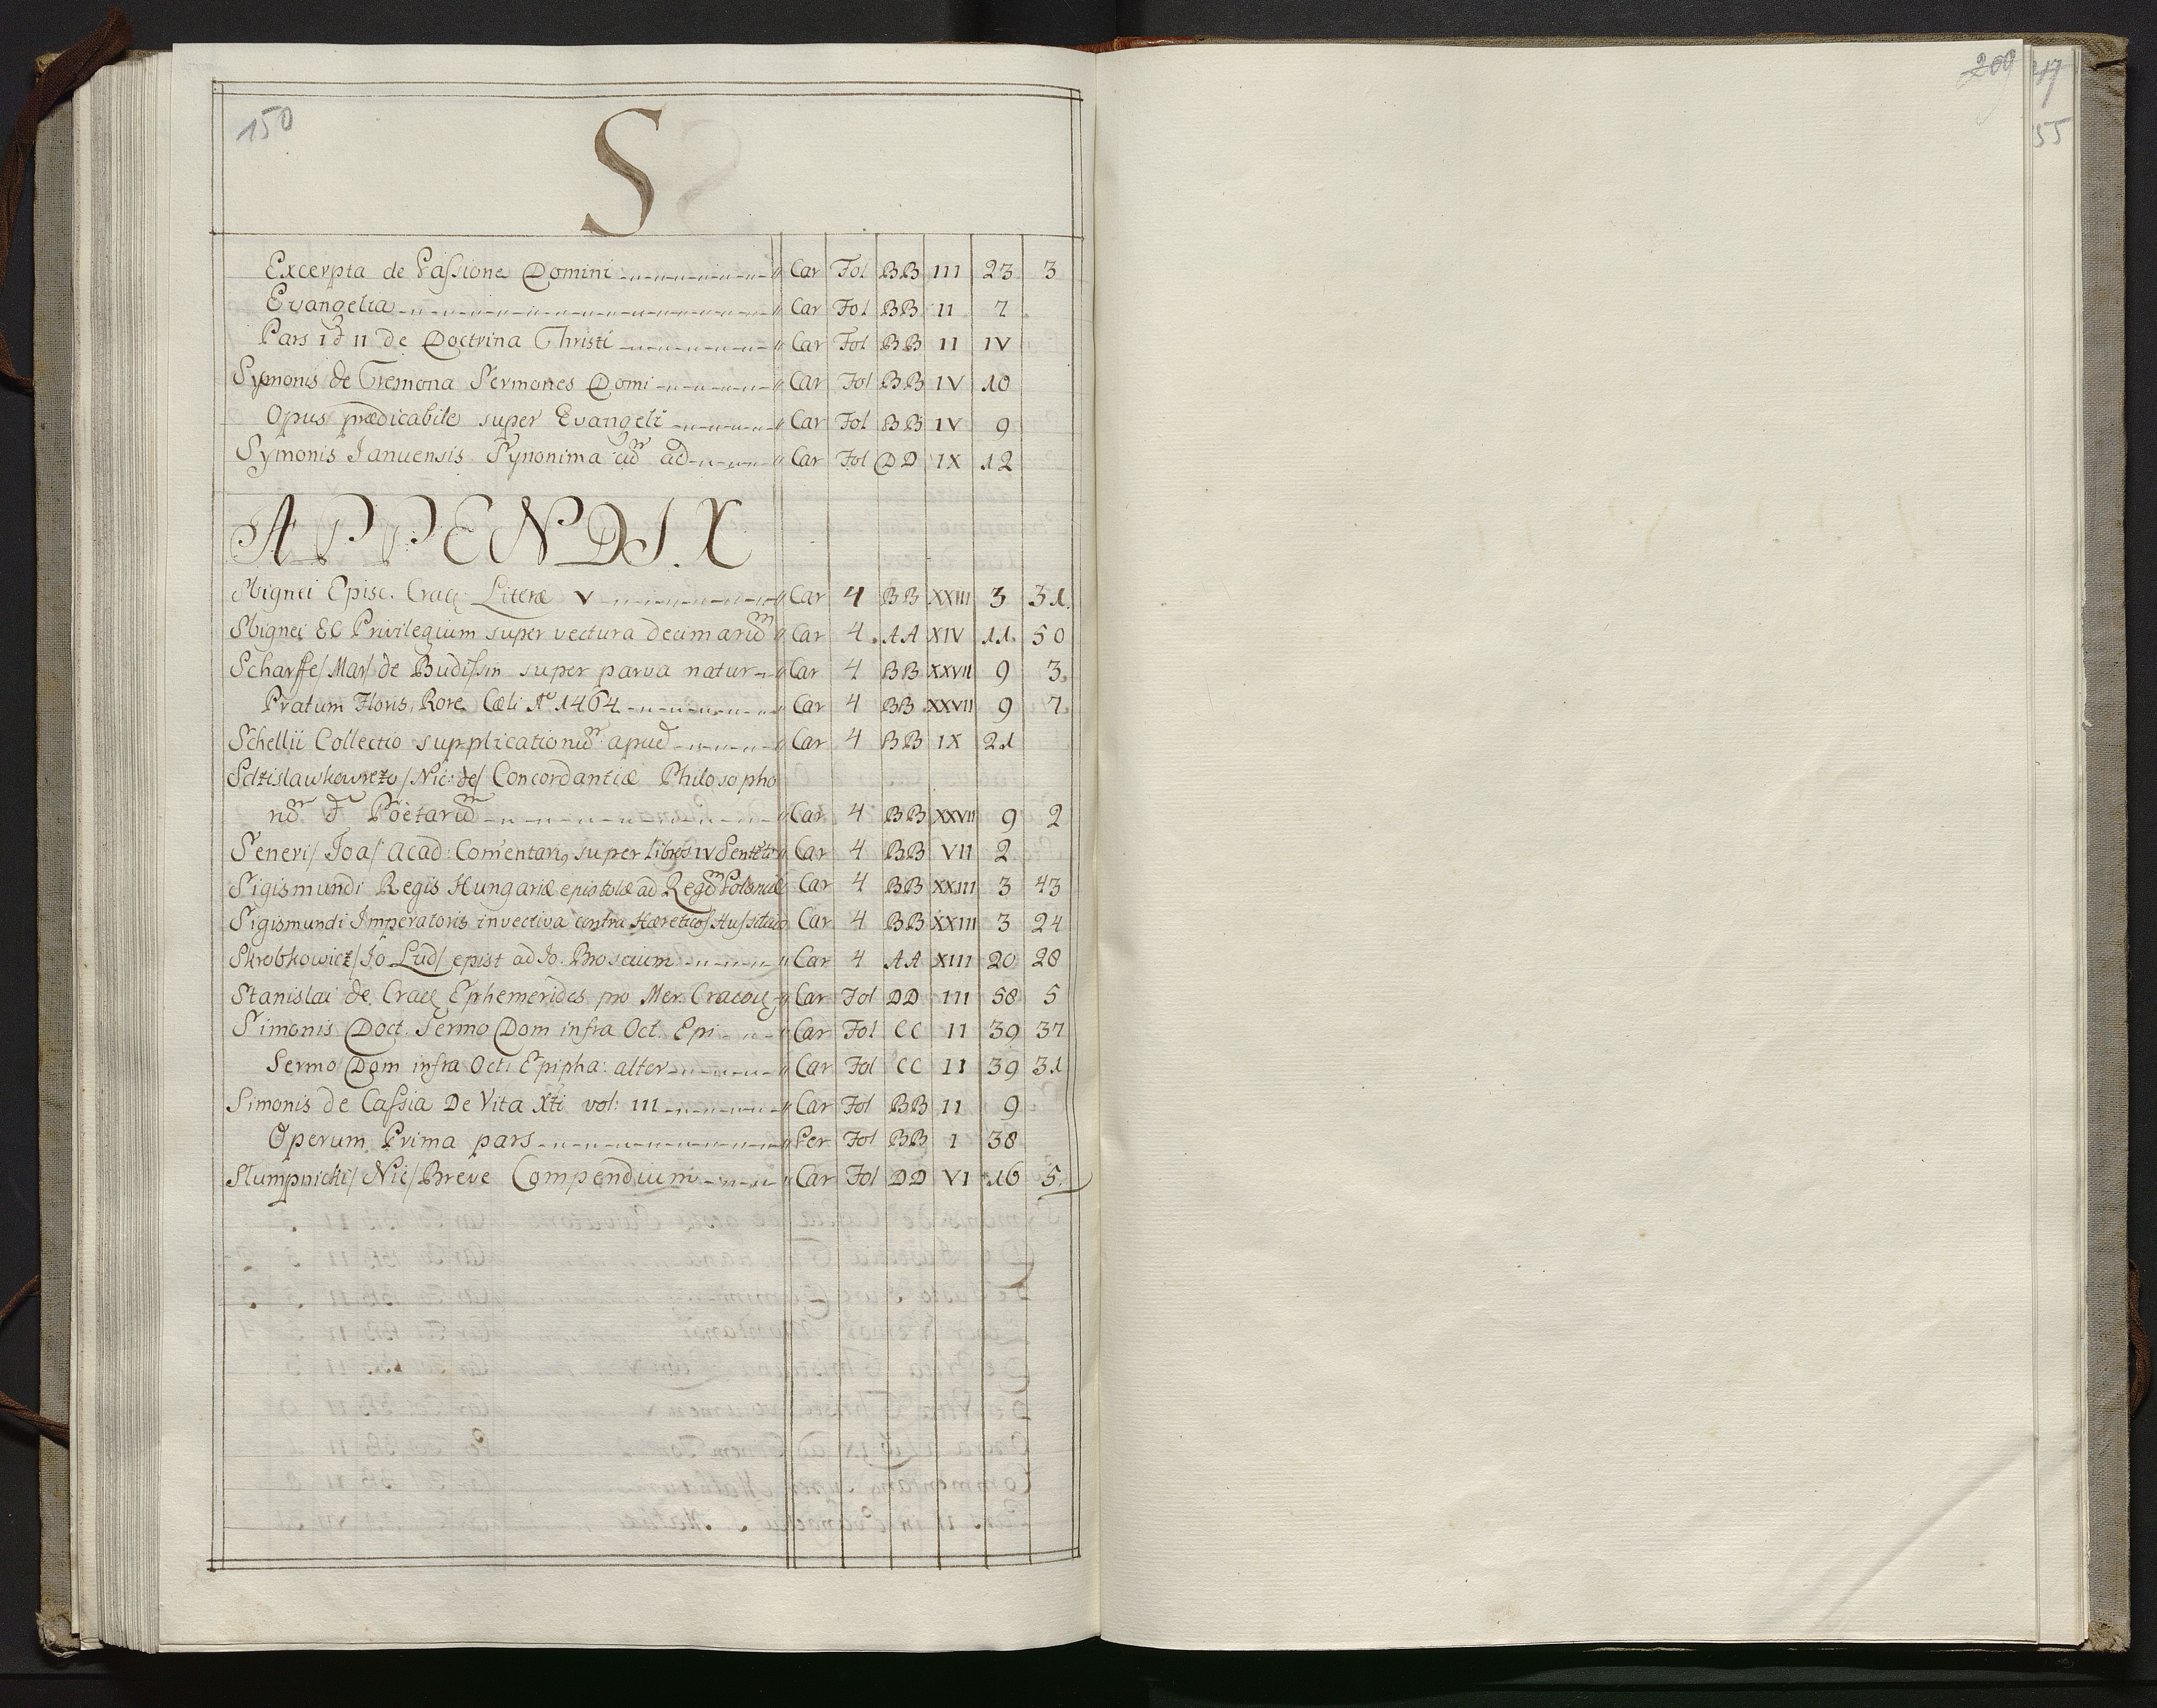 150
S
Excerpta de Passione Domini Car Fol BB III 23 3
Evangelia Car Fol BB II 7
Pars I & II de Doctrina Christi Car Fol BB II IV
Symonis de Cremona Sermones Domi Car Fol BB IV 10
Opus prædicabile super Evangeli Car Fol BB IV 9
Symonis Januensis Synonima ad Car Fol DD IX 12
APPENDIX
Sbignei Episc. Crac: Literæ V Car 4 BB XXIII 3 31
Sbignei EC Privilegium super vectura decimarum Car 4 AA XIV 11 50
Scharffe/Mar/de Budissin super parva natur Car 4 BB XXVII 9 3
Pratum Floris, Rore Cæli Ao 1464 Car 4 BB XXVII 9 7
Schellii Collectio supplicationum apud Car 4 BB IX 21
/Nic: de/ Concordantiæ Philosopho
rum & Poëtarum Car 4 BB XXVII 9 2
Seneri/Joa/Acad: Com̃entari, super Libros IV Sentetia Car 4 BB VII 2
Sigismundi Regis Hungariæ epistolæ ad Regem Poloniæ Car 4 BB XXIII 3 43
Sigismundi Imperatoris invectiva contra Hæreticos Hussitas Car 4 BB XXIII 3 24
Skrobkowicz/Jo Lud/ epist ad Jo. Broscium Car 4 AA XIII 20 28
Stanislai de Crac Ephemerides pro Mer. Cracov Car Fol DD III 58 5
Simonis Doct. Sermo Dom infra Oct. Epi Car Fol CC II 39 37
Sermo Dom infra Oct: Epipha: alter Car Fol CC II 39 31
Simonis de Cassia De Vita Xti vol: III Car Fol BB II 9
Operum Prima pars Per Fol BB I 38
Slumpnicki/Nic/Breve Compendium Car Fol DD VI 16 5
47
55